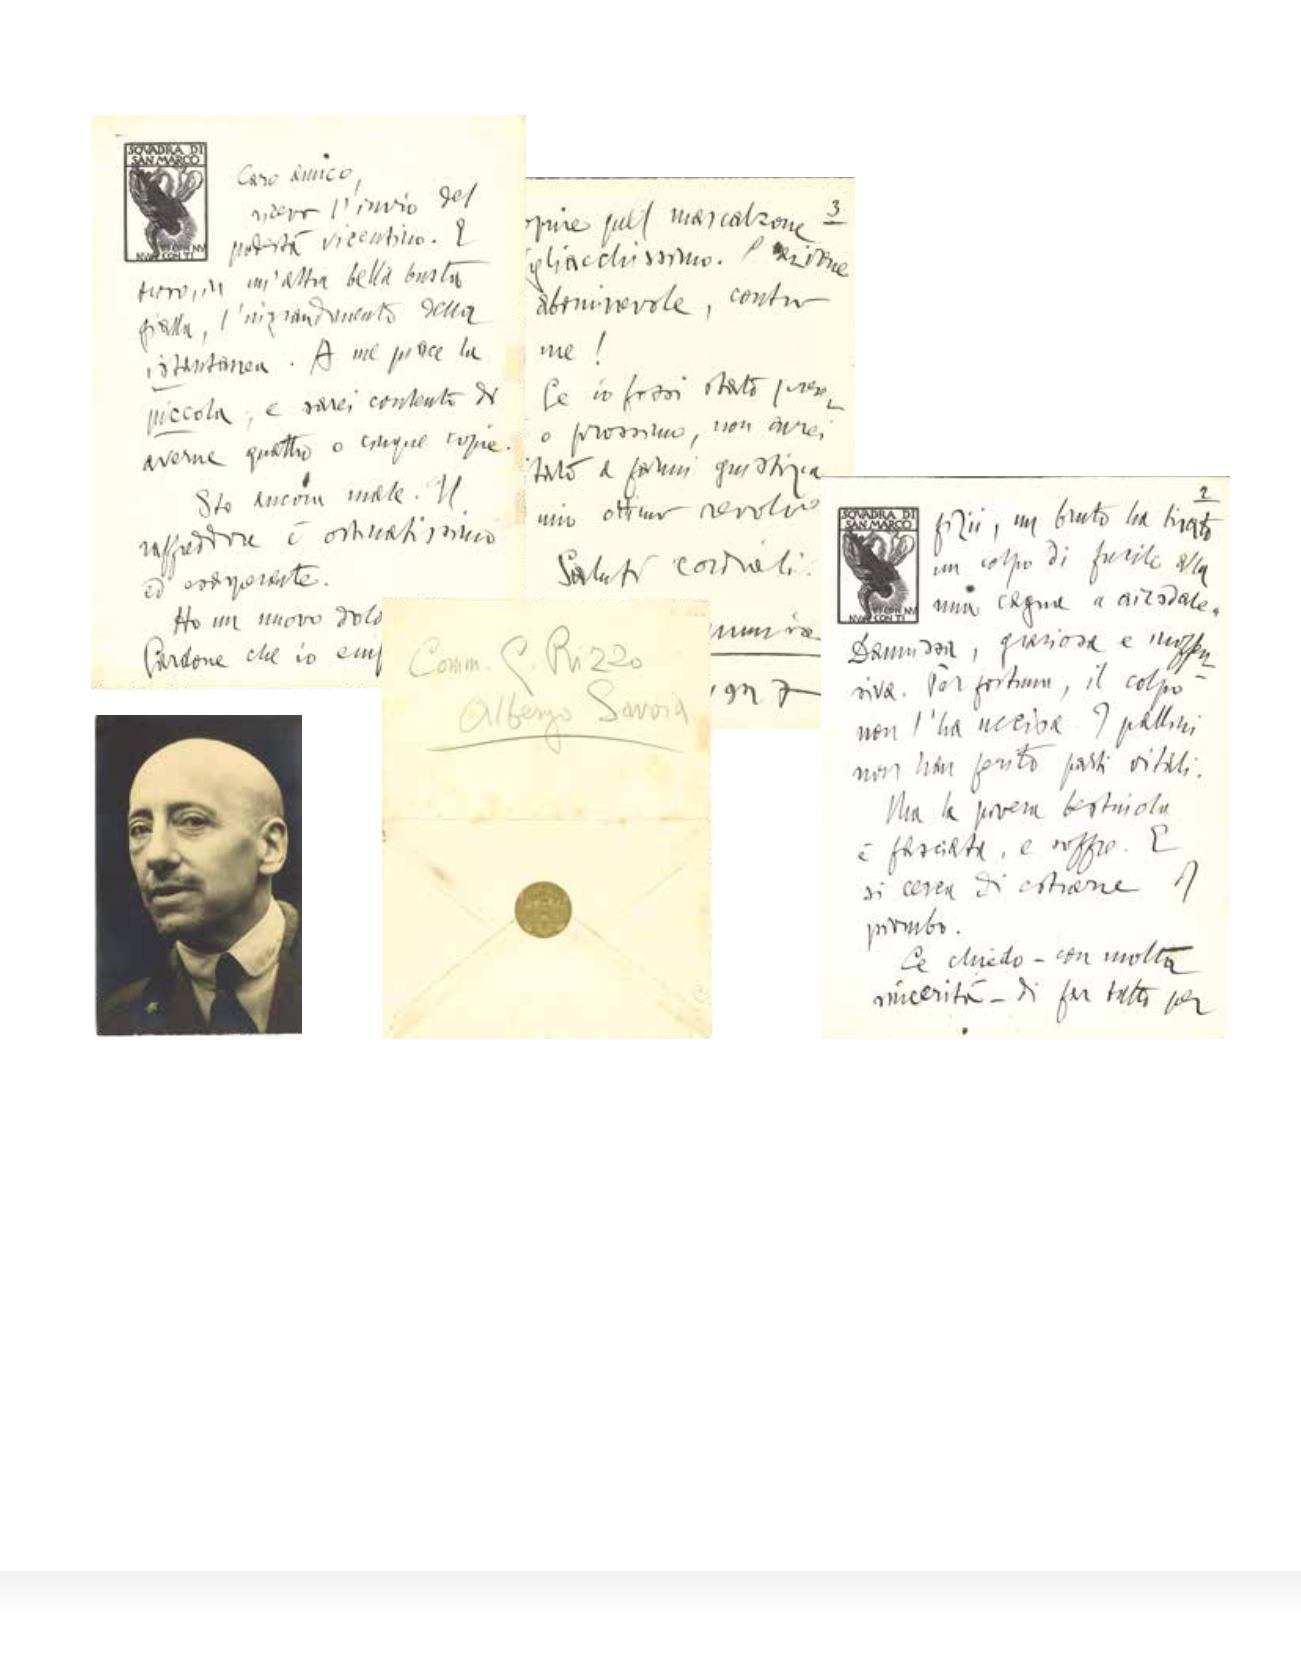 SQVADRA DI
SAN MARCO
Caro amico,
ricevo l'invio del
podestà vicentino. E
trovo, in un'altra bella busta
gialla, l'ingrandimento della
istantanea. A me piace la
piccola, e sarei contento di
averne quattro o cinque copie.
Sto ancora male. Il
raffreddore è ostinatissimo
ed esasperante.
Ho un nuovo dolo
Cardone che io
2
SQVADRA DI
SAN MARCO
fizii, un bruto ha tirato
un colpo di fucile alla
mia cagna airedale.
Dannissa, graziosa e inoffen
siva. Per fortuna, il colpo
non l'ha uccisa. I pallini
non han ferito parti vitali.
Ma la povera bestiola
è fasciata, e soffre. E
si cerca di estrarne il
piombo.
Le chiedo – con molta
sincerità – di far tutto per
3
oprire quel mascalzone
gliacchissimo. È azione
abominevole, contro
me!
Se io fossi stato prese
o prossimo, non avrei
tato a farmi giustizia
mio ottimo revolve
Saluti cordiali.
1927
Comm. G. Rizzo
Albergo Savoia